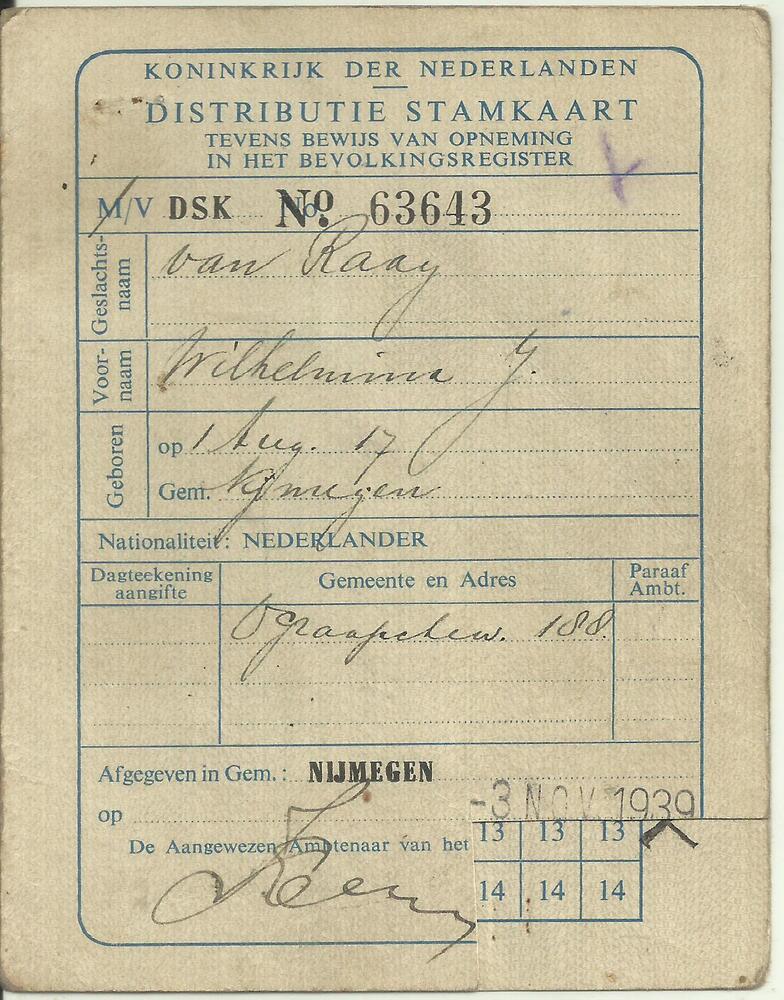 KONINKRIJK DER NEDERLANDEN
DISTRIBUTIE STAMKAART
TEVENS BEWIJS VAN OPNEMING
IN HET BEVOLKINGSREGISTER
M/V DSK No. 63643
Geslachts-
naam
van Raay
Voor-
naam
Wilhelmina J.
Geboren
op 1 Aug. 17
Gem. Nijmegen
Nationaliteit: NEDERLANDER
Dagteekening
aangifte
Gemeente en Adres
Paraaf
Ambt.
188
Afgegeven in Gem.: NIJMEGEN
op -3 NOV. 1939
De Aangewezen Ambtenaar van het
13 13 13
14 14 14